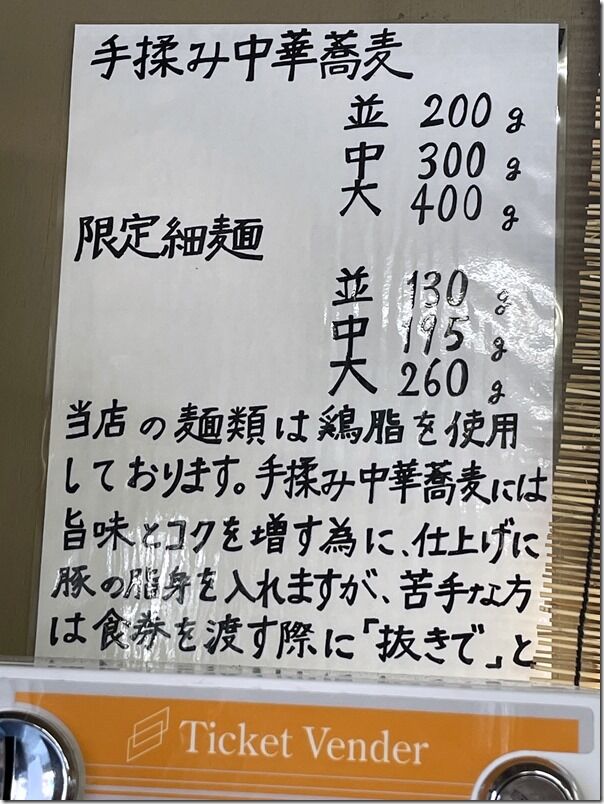 手揉み中華蕎麦
並 200g
中 300g
大 400g
限定細麺
並 130g
中 195g
大 260g
当店の麺類は鶏脂を使用
しております。手揉み中華蕎麦には
旨味とコクを増す為に、仕上げに
豚の脂身を入れますが、苦手な方
は食券を渡す際に「抜きで」と
Ticket Vender